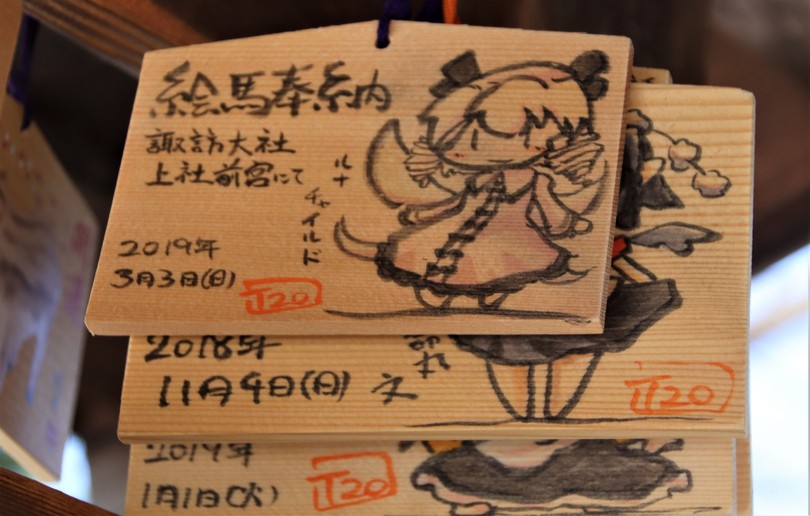 絵馬奉納
諏訪大社
上社前宮にて
ルナ
チャイルド
2019年
3月3日(日)
T20
2018年
11月4日(日) 文
T20
2019年
1月1日(火)
T20